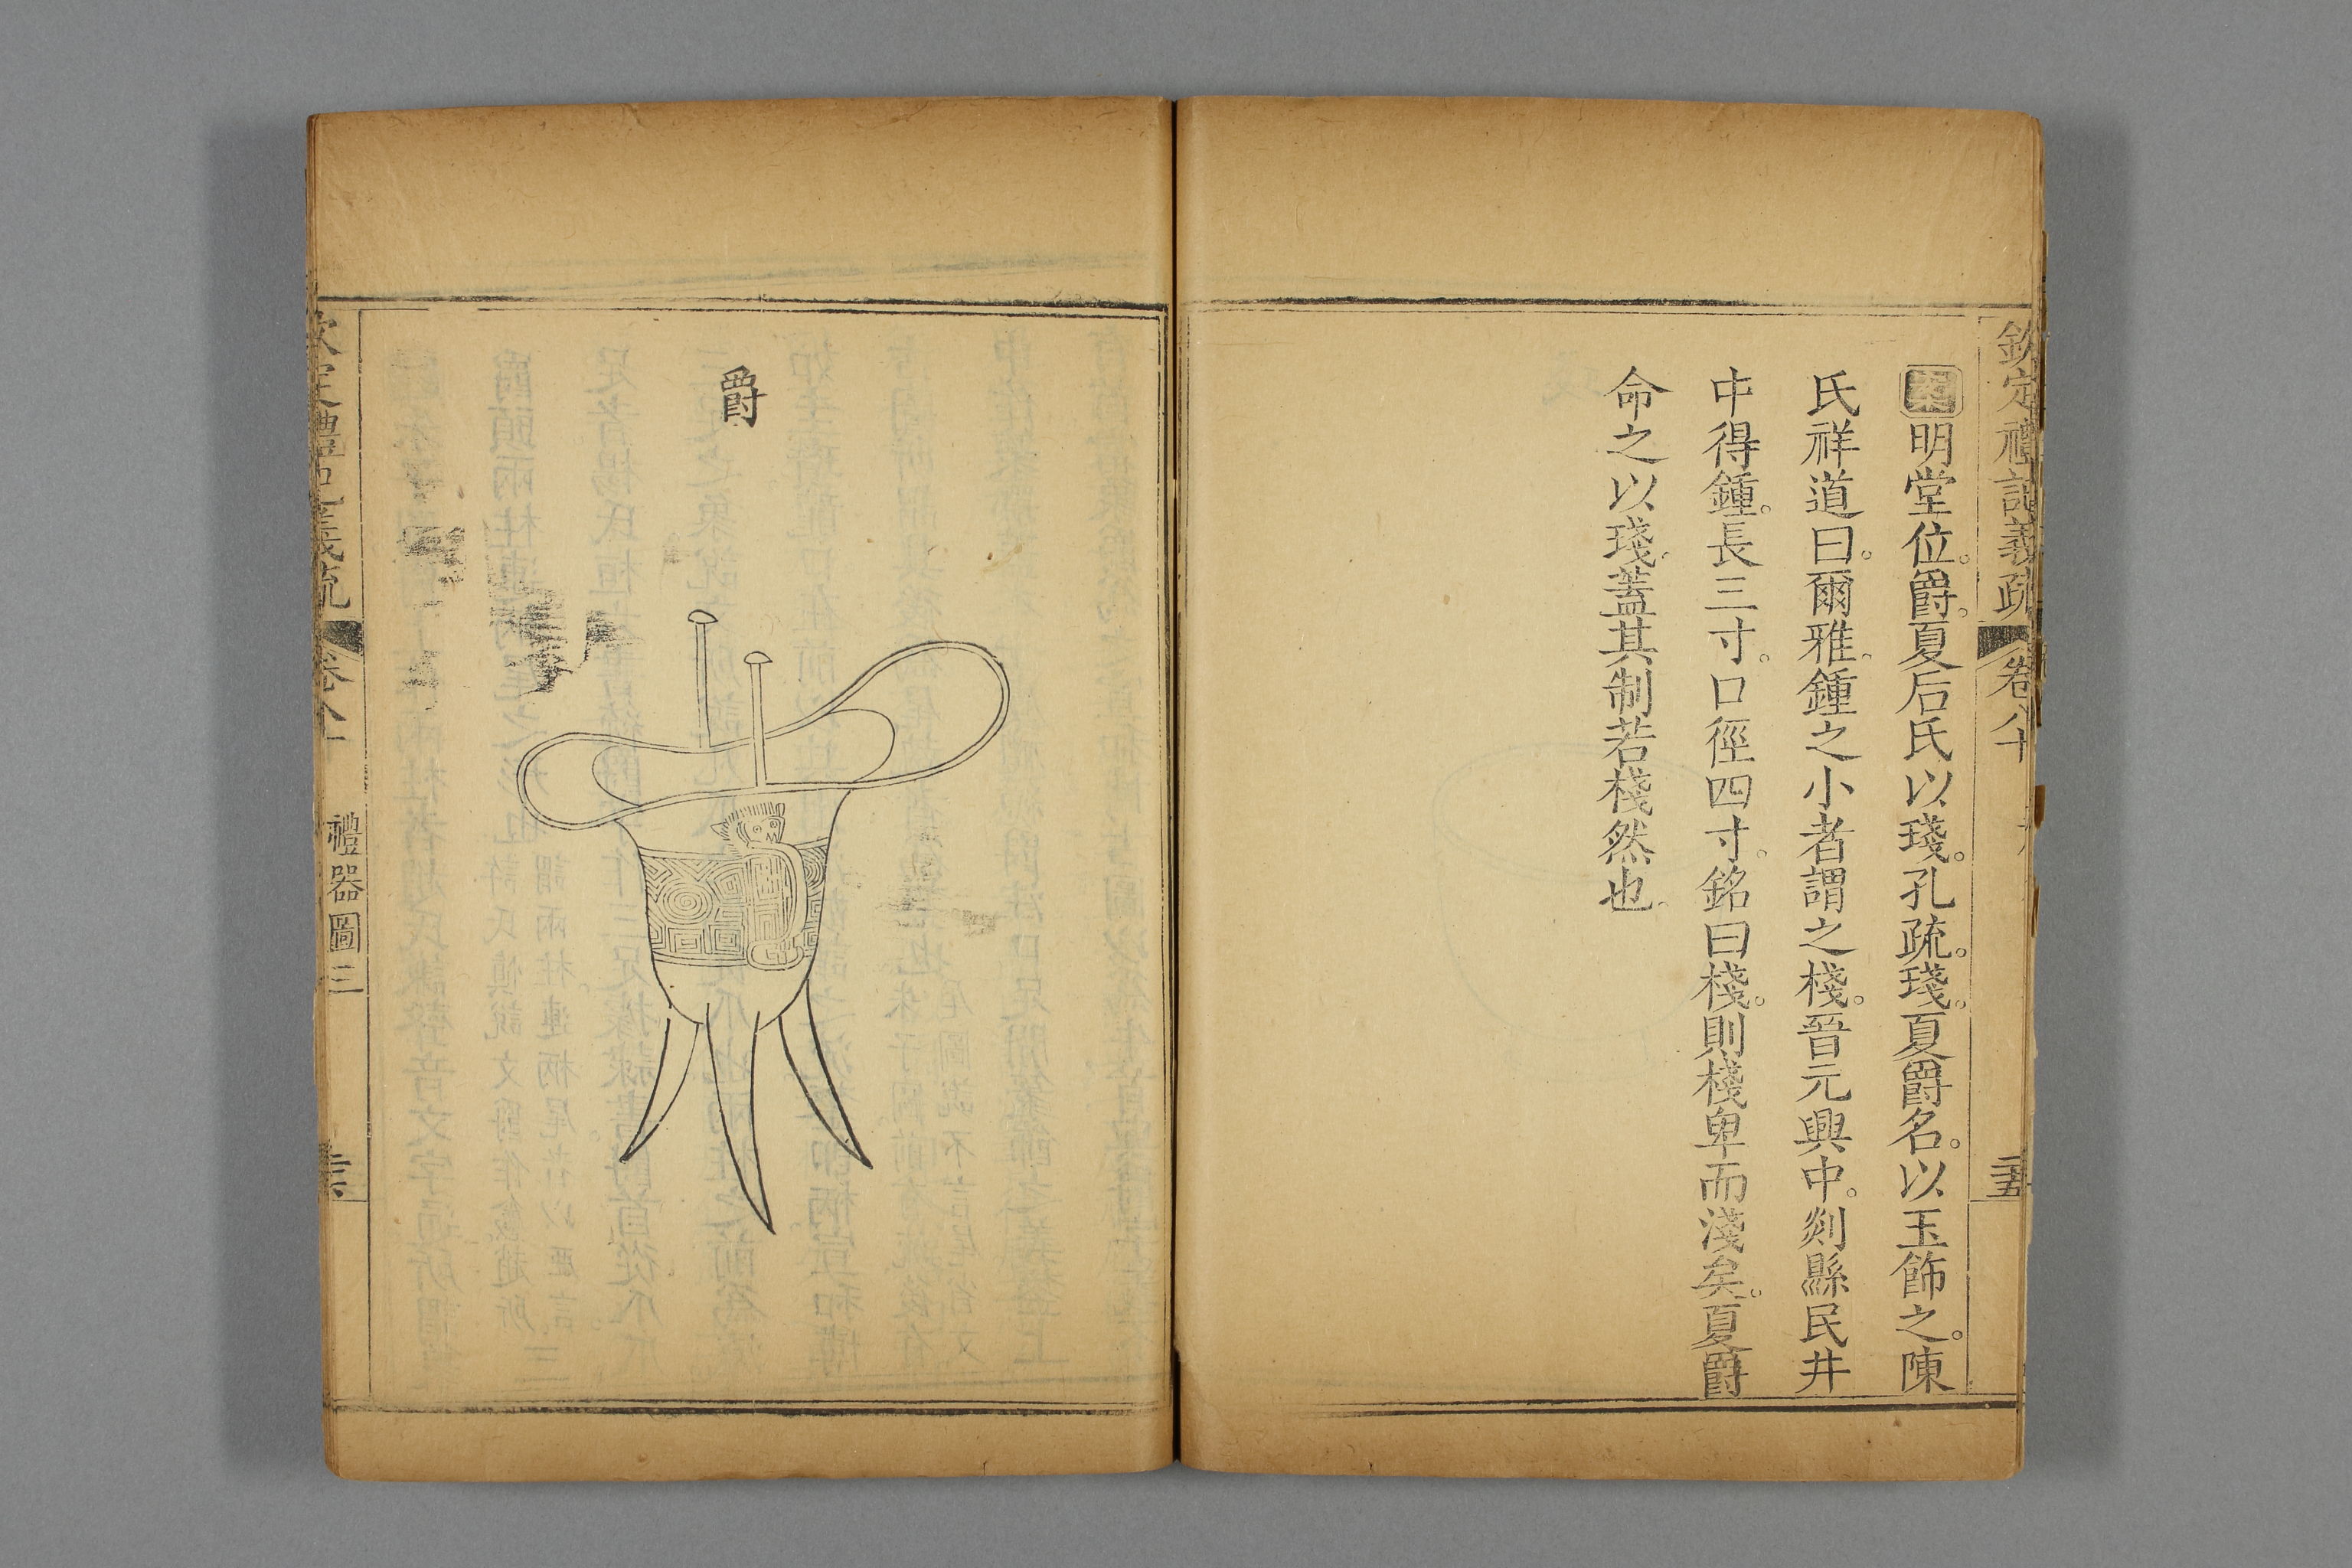 欽定禮記義疏 卷八十
案明堂位。爵。夏后氏以琖。孔疏。琖。夏爵名。以玉飾之。陳
氏祥道曰。爾雅。鍾之小者謂之棧。晉元興中。剡縣民井
中得鍾。長三寸。口徑四寸。銘曰棧。則棧卑而淺矣。夏爵
命之以琖。蓋其制若棧然也。
爵
禮器圖三